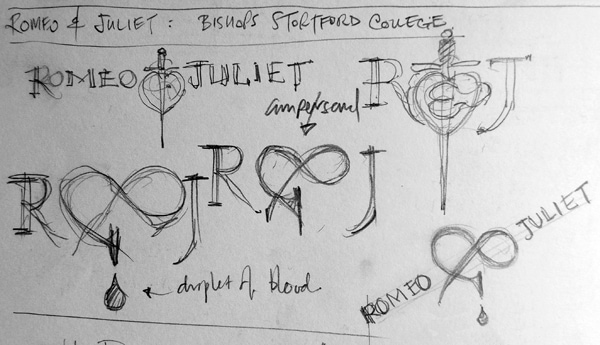 ROMEO & JULIET: BISHOPS STORTFORD COLLEGE
ROMEO JULIET
R & J
ampersand
R J
R J
droplet of blood
ROMEO JULIET